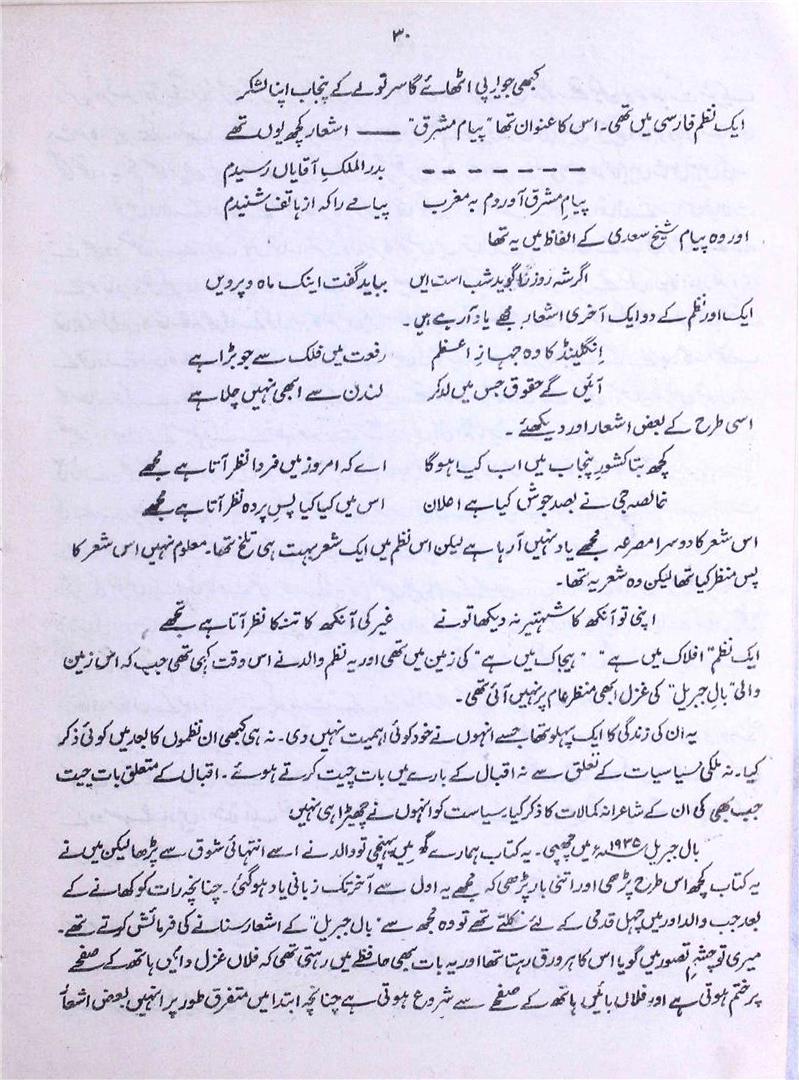 ۳۰
کبھی جو یو پی اٹھائے گا سر تو لے کے پنجاب اپنا لشکر
ایک نظم فارسی میں تھی۔ اس کا عنوان تھا "پیام مشرق" —— اشعار کچھ یوں تھے
- - - - - - بدر الملکِ آقایاں رسیدم
پیامِ مشرق آوردم بہ مغرب پیامے را کہ از ہاتف شنیدم
اور وہ پیام شیخ سعدی کے الفاظ میں یہ تھا
اگر شہ روز را گوید شب است ایں بباید گفت اینک ماہ و پرویں
ایک اور نظم کے دو ایک آخری اشعار مجھے یاد آ رہے ہیں۔
انگلینڈ کا وہ جہازِ اعظم رفعت میں فلک سے جو بڑا ہے
آئیں گے حقوق جس میں لد کر لندن سے ابھی نہیں چلا ہے
اسی طرح کے بعض اشعار اور دیکھئے
کچھ بتا کشورِ پنجاب میں اب کیا ہو گا اے کہ امروز میں فردا نظر آتا ہے مجھے
خالصہ جی نے بصد جوش کیا ہے اعلان اس میں کیا کیا پسِ پردہ نظر آتا ہے مجھے
اس شعر کا دوسرا مصرعہ مجھے یاد نہیں آ رہا ہے لیکن اس نظم میں ایک شعر بہت ہی تلخ تھا۔ معلوم نہیں اس شعر کا
پس منظر کیا تھا لیکن وہ شعر یہ تھا۔
اپنی تو آنکھ کا شہتیر نہ دیکھا تو نے غیر کی آنکھ کا تنکا نظر آتا ہے تجھے
ایک نظم "افلاک میں ہے" "بیچاک میں ہے" کی زمین میں تھی اور یہ نظم والد نے اس وقت کہی تھی جب کہ اس زمین
والی "بال جبریل" کی غزل ابھی منظر عام پر نہیں آئی تھی۔
یہ ان کی زندگی کا ایک پہلو تھا جسے انہوں نے خود کوئی اہمیت نہیں دی۔ نہ ہی کبھی ان نظموں کا بعد میں کوئی ذکر
کیا۔ نہ ملکی سیاسیات کے تعلق سے نہ اقبال کے بارے میں بات چیت کرتے ہوئے۔ اقبال کے متعلق بات چیت
جب بھی کی ان کے شاعرانہ کمالات کا ذکر کیا، سیاست کو انہوں نے چھیڑا ہی نہیں
بال جبریل ۱۹۳۵ء میں چھپی۔ یہ کتاب ہمارے گھر میں پہنچی تو والد نے اسے انتہائی شوق سے پڑھا لیکن میں نے
یہ کتاب کچھ اس طرح پڑھی اور اتنی بار پڑھی کہ مجھے یہ اول سے آخر تک زبانی یاد ہو گئی۔ چنانچہ رات کو کھانے کے
بعد جب والد اور میں چہل قدمی کے لئے نکلتے تھے تو وہ مجھ سے "بال جبریل" کے اشعار سنانے کی فرمائش کرتے تھے۔
میری تو چشمِ تصور میں گویا اس کا ہر ورق رہتا تھا اور یہ بات بھی حافظے میں رہتی تھی کہ فلاں غزل دائیں ہاتھ کے صفحے
پر ختم ہوتی ہے اور فلاں بائیں ہاتھ کے صفحے سے شروع ہوتی ہے چنانچہ ابتدا میں متفرق طور پر انہیں بعض اشعار